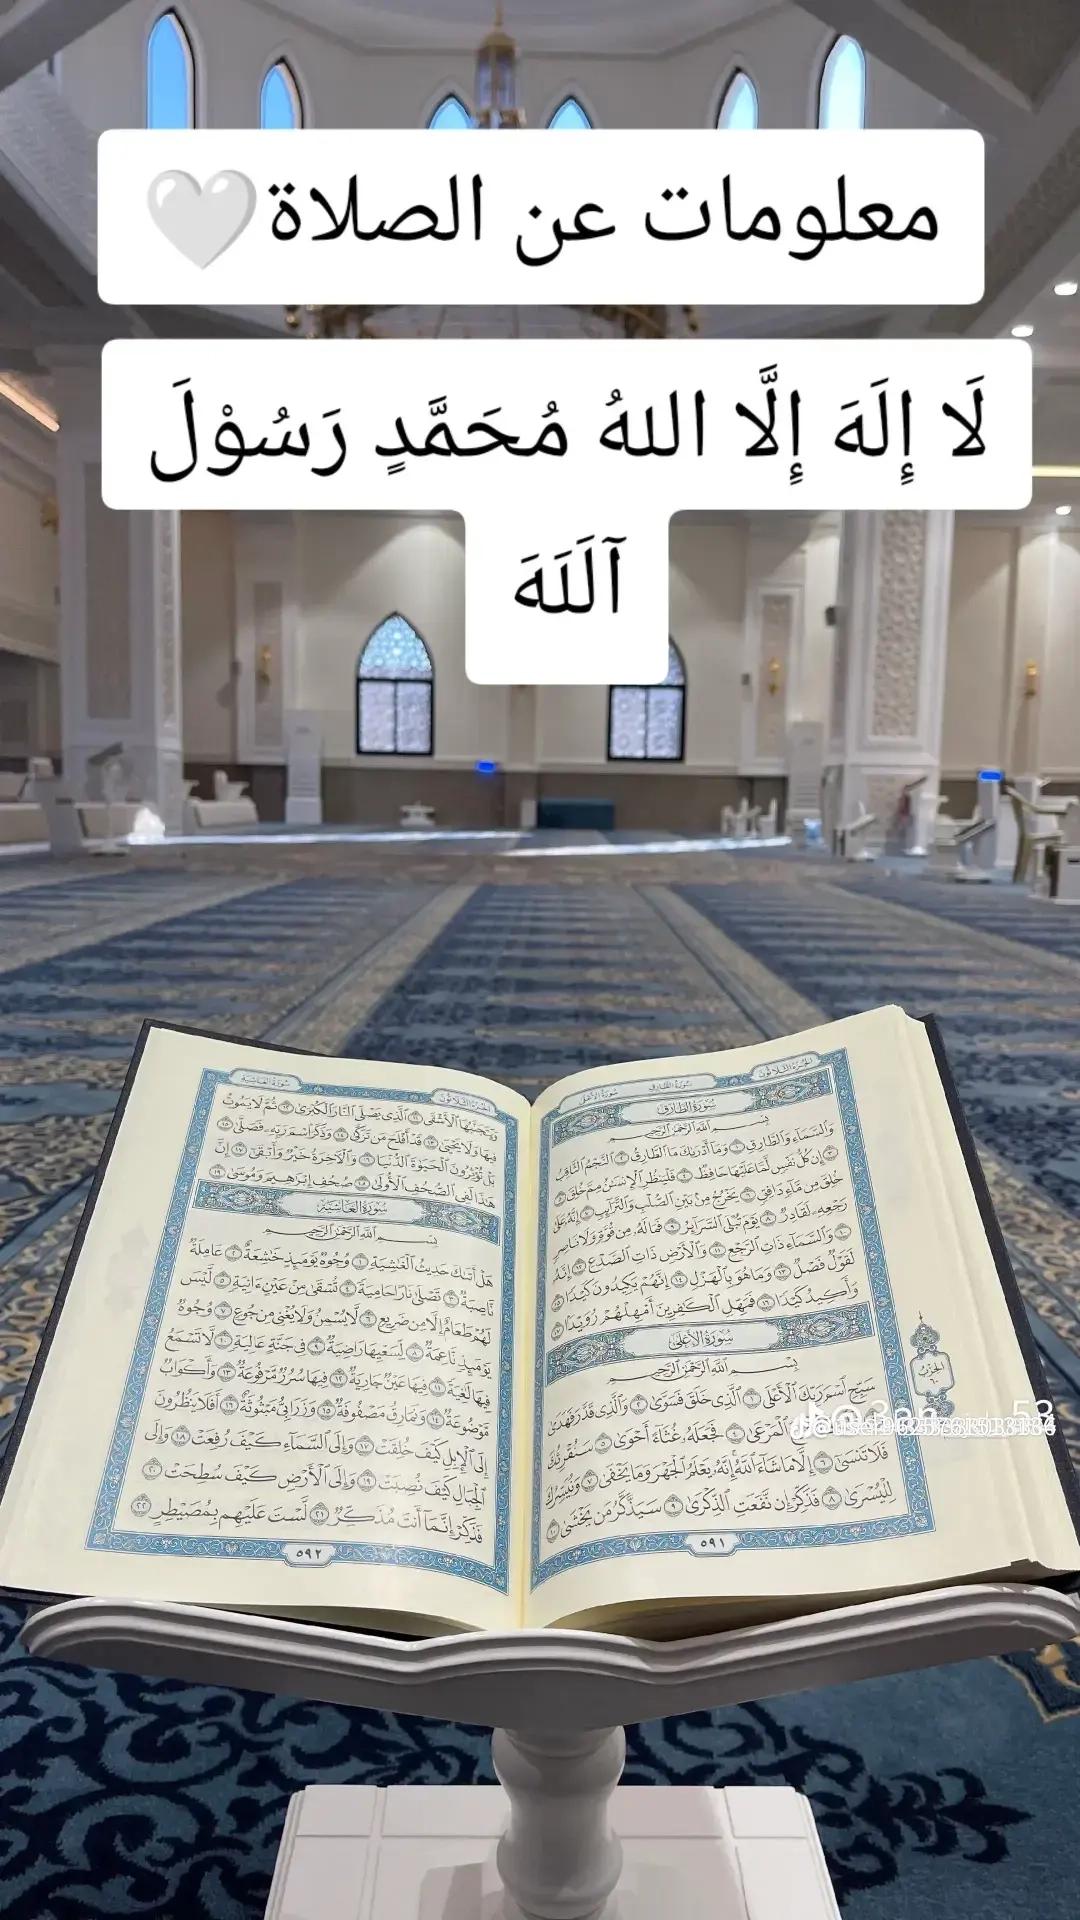 معلومات عن الصلاة🤍
لَا إِلَهَ إِلَّا اللهُ مُحَمَّدٍ رَسُوْلَ
آلَلَهَ
الجزء الثلاثون
سورة الطارق
سورة الأعلى
سُورَةُ الطَّارِقِ
بِسْمِ اللَّهِ الرَّحْمَٰنِ الرَّحِيمِ
وَالسَّمَاءِ وَالطَّارِقِ ١ وَمَا أَدْرَىٰكَ مَا الطَّارِقُ ٢ النَّجْمُ الثَّاقِبُ
٣ إِن كُلُّ نَفْسٍ لَّمَّا عَلَيْهَا حَافِظٌ ٤ فَلْيَنظُرِ الْإِنسَٰنُ مِمَّ خُلِقَ ٥
خُلِقَ مِن مَّاءٍ دَافِقٍ ٦ يَخْرُجُ مِنْ بَيْنِ الصُّلْبِ وَالتَّرَائِبِ ٧ إِنَّهُ عَلَىٰ
رَجْعِهِ لَقَادِرٌ ٨ يَوْمَ تُبْلَى السَّرَائِرُ ٩ فَمَا لَهُ مِن قُوَّةٍ وَلَا نَاصِرٍ
١٠ وَالسَّمَاءِ ذَاتِ الرَّجْعِ ١١ وَالْأَرْضِ ذَاتِ الصَّدْعِ ١٢ إِنَّهُ
لَقَوْلٌ فَصْلٌ ١٣ وَمَا هُوَ بِالْهَزْلِ ١٤ إِنَّهُمْ يَكِيدُونَ كَيْدًا ١٥
وَأَكِيدُ كَيْدًا ١٦ فَمَهِّلِ الْكَٰفِرِينَ أَمْهِلْهُمْ رُوَيْدًا ١٧
سُورَةُ الأَعْلَىٰ
بِسْمِ اللَّهِ الرَّحْمَٰنِ الرَّحِيمِ
سَبِّحِ اسْمَ رَبِّكَ الْأَعْلَى ١ الَّذِي خَلَقَ فَسَوَّىٰ ٢ وَالَّذِي قَدَّرَ فَهَدَىٰ
الْمَرْعَىٰ ٤ فَجَعَلَهُ غُثَاءً أَحْوَىٰ ٥ سَنُقْرِئُكَ
فَلَا تَنسَىٰ ٦ إِلَّا مَا شَاءَ اللَّهُ إِنَّهُ يَعْلَمُ الْجَهْرَ وَمَا يَخْفَىٰ ٧ وَنُيَسِّرُكَ
لِلْيُسْرَىٰ ٨ فَذَكِّرْ إِن نَّفَعَتِ الذِّكْرَىٰ ٩ سَيَذَّكَّرُ مَن يَخْشَىٰ ١٠
الحزب
٦٠
٥٩١
الجزء الثلاثون
سورة الغاشية
وَيَتَجَنَّبُهَا الْأَشْقَى ١١ الَّذِي يَصْلَى النَّارَ الْكُبْرَىٰ ١٢ ثُمَّ لَا يَمُوتُ
فِيهَا وَلَا يَحْيَىٰ ١٣ قَدْ أَفْلَحَ مَن تَزَكَّىٰ ١٤ وَذَكَرَ اسْمَ رَبِّهِ فَصَلَّىٰ ١٥
بَلْ تُؤْثِرُونَ الْحَيَوٰةَ الدُّنْيَا ١٦ وَالْآخِرَةُ خَيْرٌ وَأَبْقَىٰ ١٧ إِنَّ
هَٰذَا لَفِي الصُّحُفِ الْأُولَىٰ ١٨ صُحُفِ إِبْرَٰهِيمَ وَمُوسَىٰ ١٩
سُورَةُ الغَاشِيَةِ
بِسْمِ اللَّهِ الرَّحْمَٰنِ الرَّحِيمِ
هَلْ أَتَىٰكَ حَدِيثُ الْغَٰشِيَةِ ١ وُجُوهٌ يَوْمَئِذٍ خَٰشِعَةٌ ٢ عَامِلَةٌ
نَّاصِبَةٌ ٣ تَصْلَىٰ نَارًا حَامِيَةً ٤ تُسْقَىٰ مِنْ عَيْنٍ ءَانِيَةٍ ٥ لَّيْسَ
لَهُمْ طَعَامٌ إِلَّا مِن ضَرِيعٍ ٦ لَّا يُسْمِنُ وَلَا يُغْنِي مِن جُوعٍ ٧ وُجُوهٌ
يَوْمَئِذٍ نَّاعِمَةٌ ٨ لِّسَعْيِهَا رَاضِيَةٌ ٩ فِي جَنَّةٍ عَالِيَةٍ ١٠ لَّا تَسْمَعُ
فِيهَا لَٰغِيَةً ١١ فِيهَا عَيْنٌ جَارِيَةٌ ١٢ فِيهَا سُرُرٌ مَّرْفُوعَةٌ ١٣ وَأَكْوَابٌ
مَّوْضُوعَةٌ ١٤ وَنَمَارِقُ مَصْفُوفَةٌ ١٥ وَزَرَابِيُّ مَبْثُوثَةٌ ١٦ أَفَلَا يَنظُرُونَ
إِلَى الْإِبِلِ كَيْفَ خُلِقَتْ ١٧ وَإِلَى السَّمَاءِ كَيْفَ رُفِعَتْ ١٨ وَإِلَى
الْجِبَالِ كَيْفَ نُصِبَتْ ١٩ وَإِلَى الْأَرْضِ كَيْفَ سُطِحَتْ ٢٠
فَذَكِّرْ إِنَّمَا أَنتَ مُذَكِّرٌ ٢١ لَّسْتَ عَلَيْهِم بِمُصَيْطِرٍ ٢٢
٥٩٢